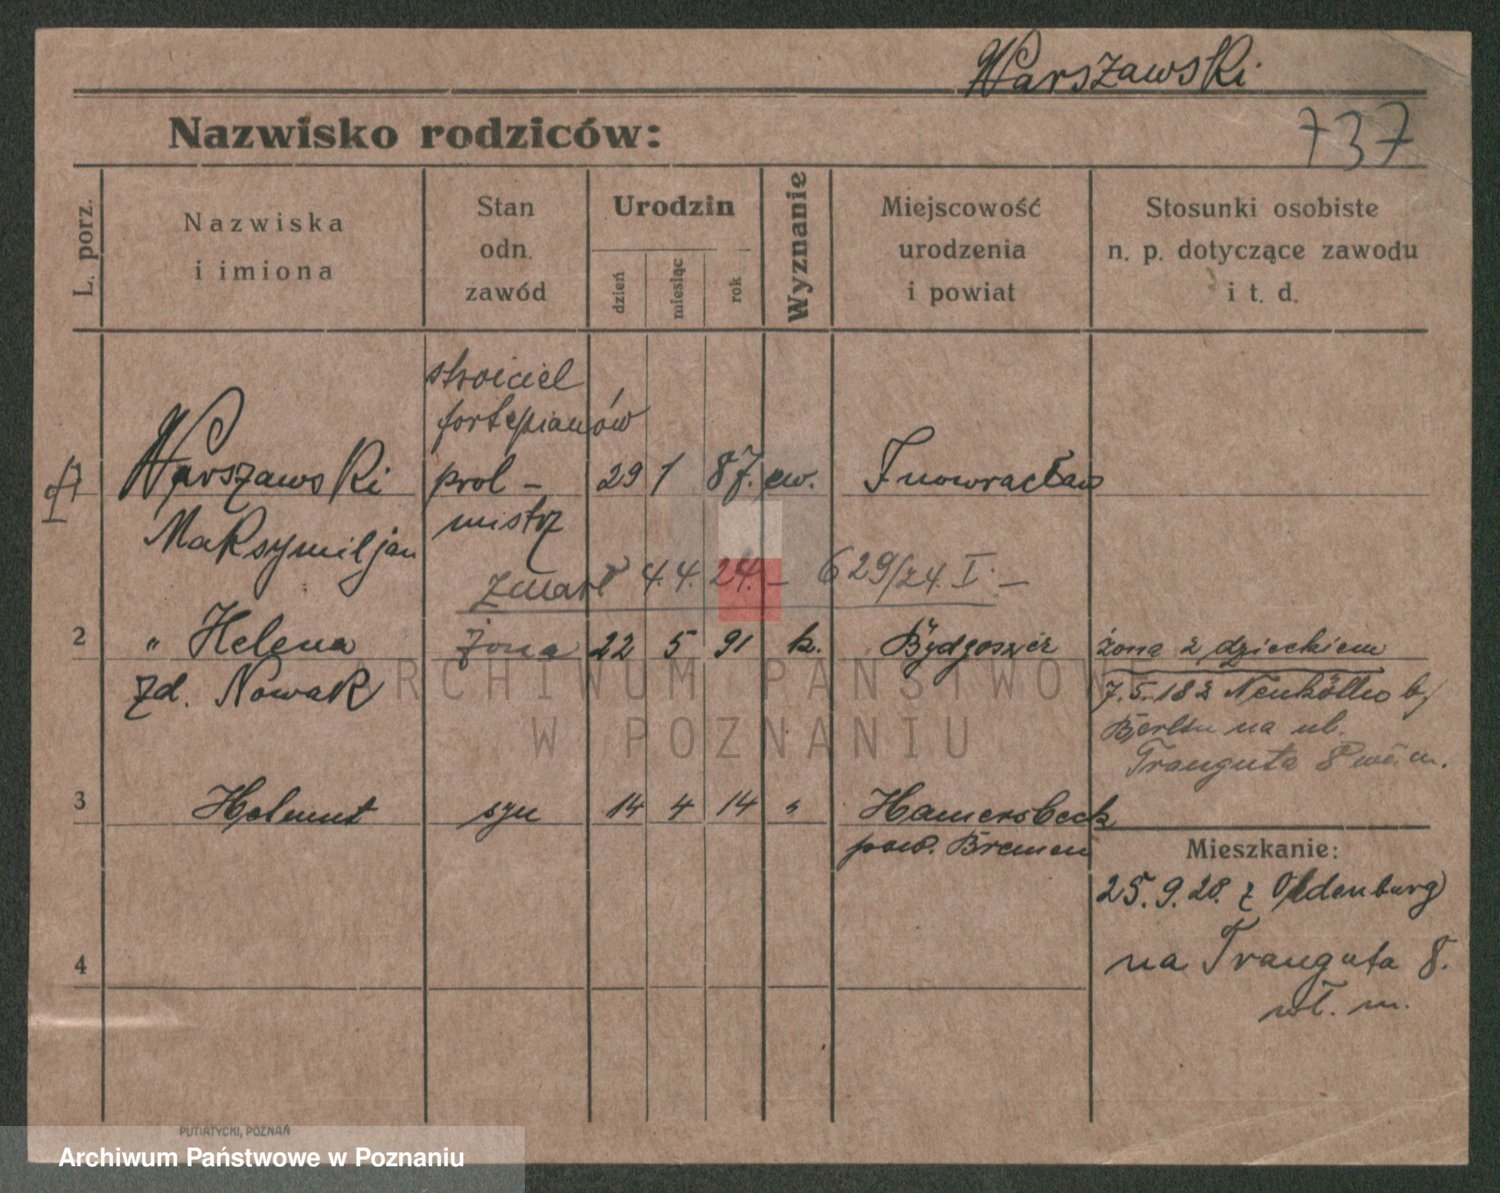 Warszawski
Nazwisko rodziców:
737
L. porz.
Nazwiska
i imiona
Stan
odn.
zawód
Urodzin
dzień
miesiąc
rok
Wyznanie
Miejscowość
urodzenia
i powiat
Stosunki osobiste
n. p. dotyczące zawodu
i t. d.
stroiciel
fortepianów
1 Warszawski
Maksymiljan
prol-
mistrz
29 1 87. ew. Inowrocław
zmarł 4.4.24.– 629/24 I. –
2 " Helena żona 22 5 91 k. Bydgoszcz
zd. Nowak
żona z dzieckiem
7.5.18 z Neukölln b/
Berlin na ul.
Trauguta 8 m.
3 Helmut syn 14 4 14 "
Hamersbeck
pow. Bremen
Mieszkanie:
25.9.28. z Oldenburg
na Trauguta 8.
wł. m.
4
PUTIATYCKI, POZNAŃ
ARCHIWUM PAŃSTWOWE
W POZNANIU
Archiwum Państwowe w Poznaniu